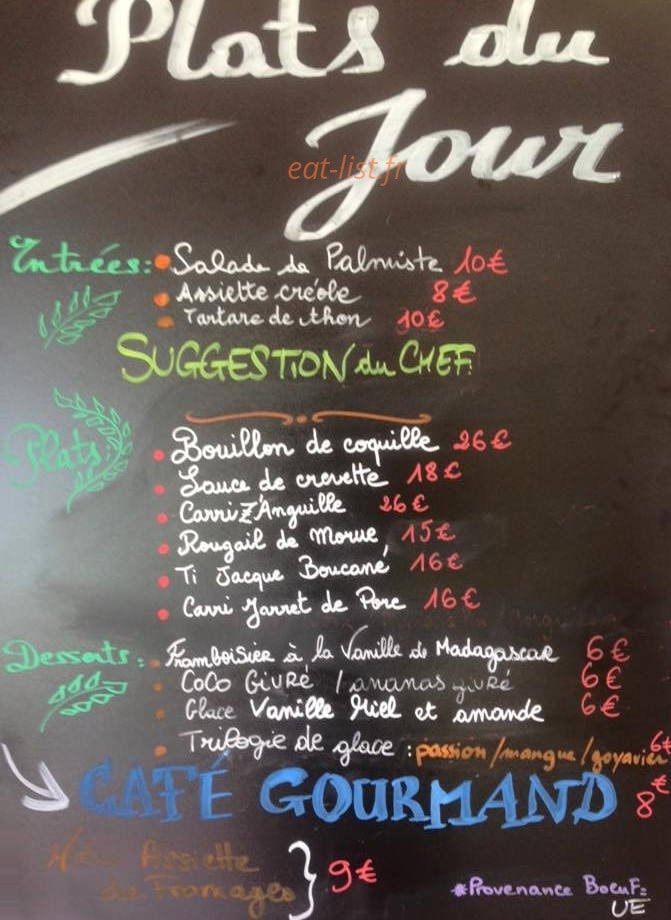 Plats du
Jour
eat-list.fr
Entrées: Salade de Palmiste 10€
Assiette créole 8€
Tartare de thon 10€
SUGGESTION du CHEF
Plats: Bouillon de coquille 26€
Sauce de crevette 18€
Carri Z'Anguille 26€
Rougail de Morue 15€
Ti Jacque Boucané 16€
Carri Jarret de Porc 16€
Desserts: Framboisier à la Vanille de Madagascar 6€
CoCo GIVRÉ / ananas givré 6€
Glace Vanille Miel et amande 6€
Trilogie de glace : passion / mangue / goyavier 6€
CAFÉ GOURMAND 8€
Assiette
de Fromages } 9€
*Provenance Boeuf:
UE